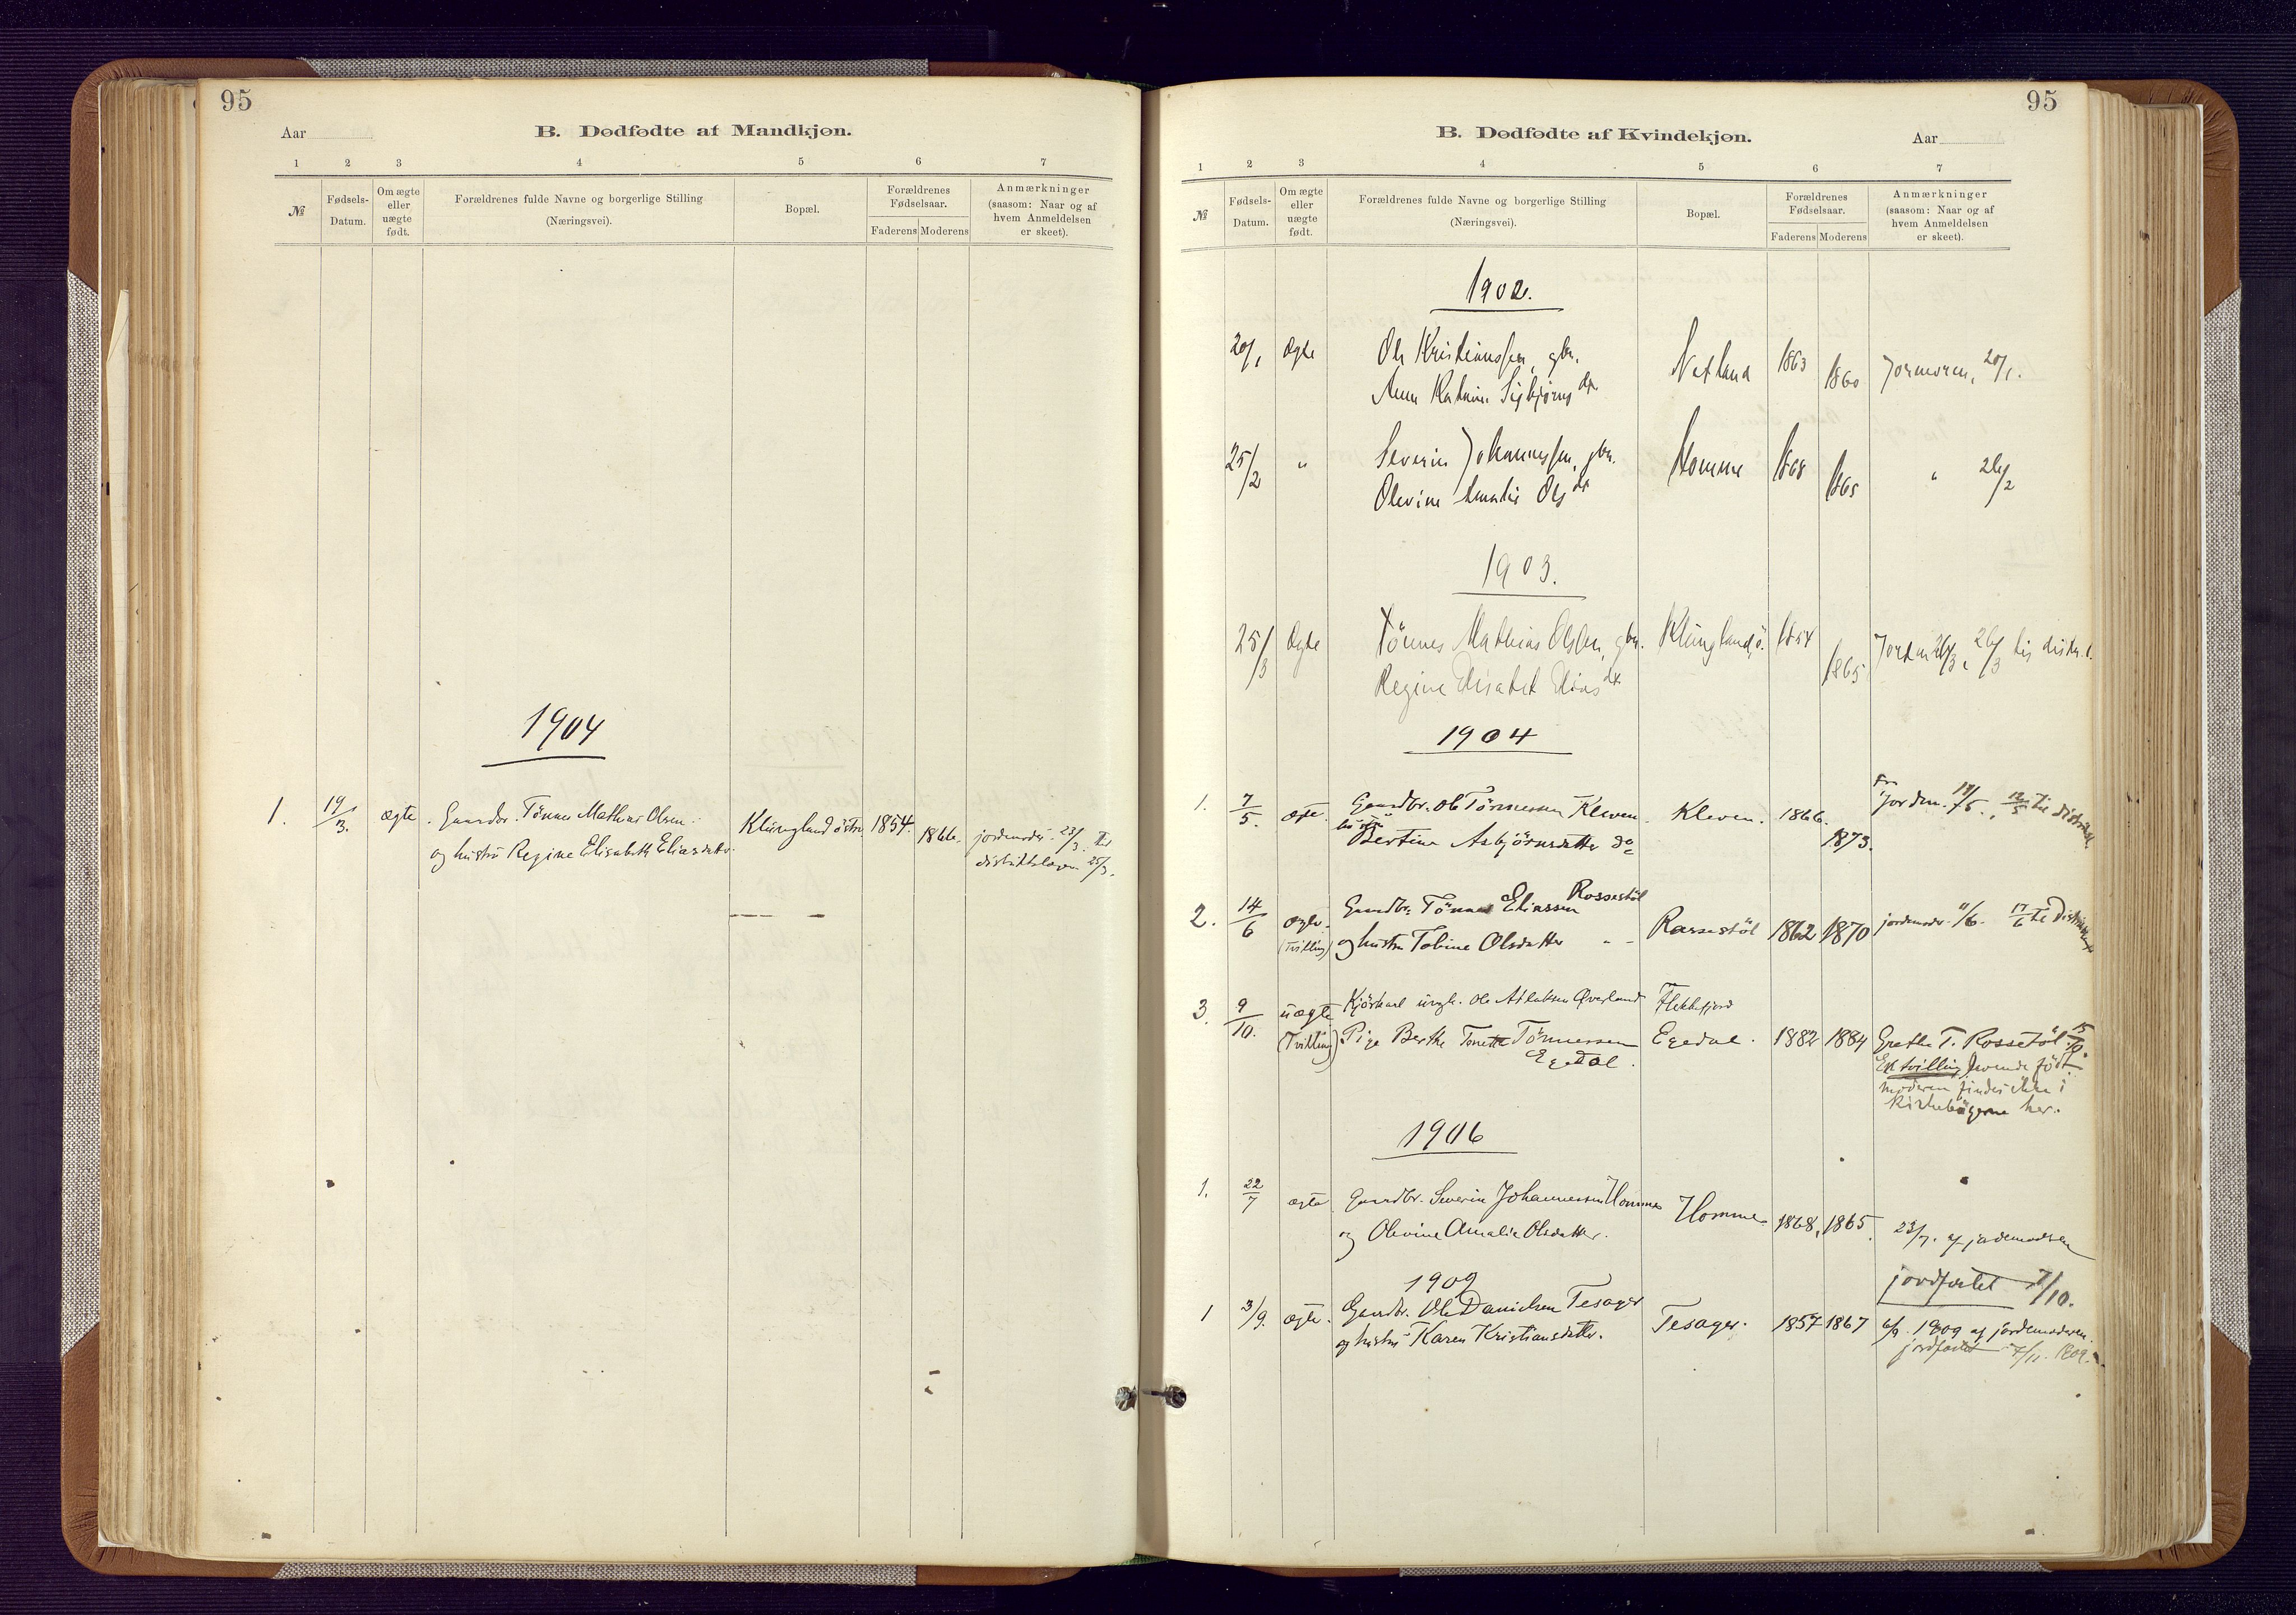 95
Aar
B. Dødfødte af Mandkjøn.
1 2 3 4 5 6 7
№
Fødsels-
Datum.
Om ægte
eller
uægte
født.
Forældrenes fulde Navne og borgerlige Stilling
(Næringsvei).
Bopæl.
Forældrenes
Fødselsaar.
Faderens Moderens
Anmærkninger
(saasom: Naar og af
hvem Anmeldelsen
er skeet).
1904
1. 19/3. ægte. Gaardbr. Tönnes Mathias Olsen
og hustru Regine Elisabeth Eliasdatter
Klungland östre 1854. 1866.
jordemoder 23/3. til
distriktslægen 25/3.
95
B. Dødfødte af Kvindekjøn.
Aar
1 2 3 4 5 6 7
№
Fødsels-
Datum.
Om ægte
eller
uægte
født.
Forældrenes fulde Navne og borgerlige Stilling
(Næringsvei).
Bopæl.
Forældrenes
Fødselsaar.
Faderens Moderens
Anmærkninger
(saasom: Naar og af
hvem Anmeldelsen
er skeet).
1902.
20/1 Ægte Ole Kristianssen, gbr. Netland 1863 1860 Jormoren, 20/1.
Anne Sigbjørnsdtr
25/2 " Severin Johannessen, gbr. Homme 1868 1865 " 26/2
Olevine Amalie Olsdtr
1903.
25/3 Ægte Tönnes Mathias Olsen, gbr. Klungland, ö. 1854 1865 26/3 til distr. l.
Regine Elisabet Eliasdtr
1904
1. 7/5. ægte. Gaardbr. Ole Tönnessen Kleven. Kleven. 1866. 1873.
hustru
Bertine Asbjörnsdatter do
Fr. jordm. 11/5., 12/5 til distriktsl.
2. 14/6 ægte. Gaardbr. Tönnes Eliassen Rossestöl
(Tvilling) og hustru Tobine Olsdatter " - Rossestöl 1862 1870 jordemoder 11/6. 17/6 til
3. 9/10. uægte Kjörkarl ungk. Ole Aslaksen Øverland Flekkefjord
(Tvilling) Pige Berthe Tonette Tönnessen Egedal. 1882 1884 Grethe T. Rossetöl 15/10.
Egedal.
En tvilling levende födt.
moderen findes ikke i
kirkebögerne her.
1906
1. 22/7 ægte Gaardbr. Severin Johannessen Homme
og Olevine Amalie Olsdatter. Homme 1868, 1865. 23/7. af jordemoderen
jordfæstet 7/10.
1909
1 3/9. ægte. Gaardbr. Ole Danielsen Tesager
og hustru Karen Kristiansdatter. Tesager. 1857 1867 6/9. 1909 af jordemoderen.
jordfæstet 7/11. 1909.